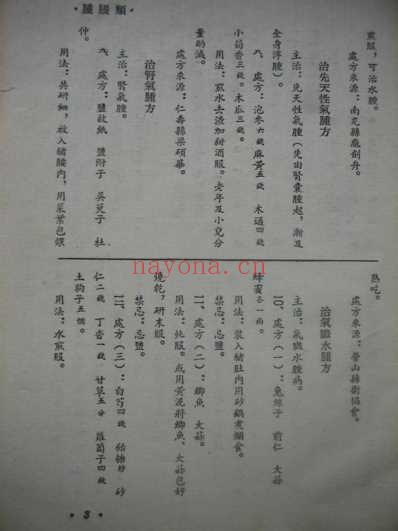 ·類腫腫·
煎服，可治水腫。
處方來源：南充縣龐劍丹。
治先天性氣腫方
主治：先天性氣腫（先由腎囊腫起，漸及
全身浮腫）。
八、處方：泡參六錢 麻黃五錢 木通四錢
小茴香三錢。木瓜三錢。
用法：煎水去渣加甜酒服。老年及小兒分
量酌減。
處方來源：仁壽縣梁碩華。
治腎氣腫方
主治：腎氣腫。
九、處方：鹽故紙 鹽附子 吳萸子 杜
仲。
用法：共研細，放入豬腰內，用菜葉包煨
熟吃。
處方來源：營山縣衛協會。
治氣臌水腫方
主治：氣臌水腫病。
一〇、處方（一）：兔絲子 前仁 大蒜
蜂蜜各一兩。
用法：裝入豬肚內用砂鍋煮爛食。
禁忌：忌鹽。
一一、處方（二）：鯽魚 大蒜。
用法：燉服。或用黃泥將鯽魚、大蒜包好
燒乾，研末服。
禁忌：忌鹽。
一二、處方（三）：白芍四錢 砂
仁二錢 丁香一錢 甘草五分 蘿蔔子四錢
土狗子五個。
用法：水煎服。
·3·
nayona.cn